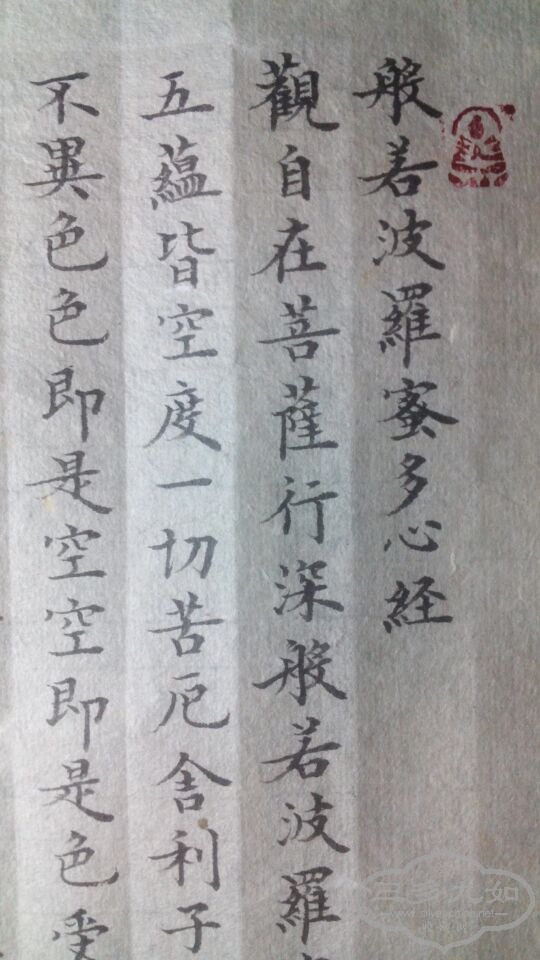 般若波羅蜜多心経
觀自在菩薩行深般若波羅
五蘊皆空度一切苦厄舍利子
不異色色即是空空即是色受
www.silverchine.net